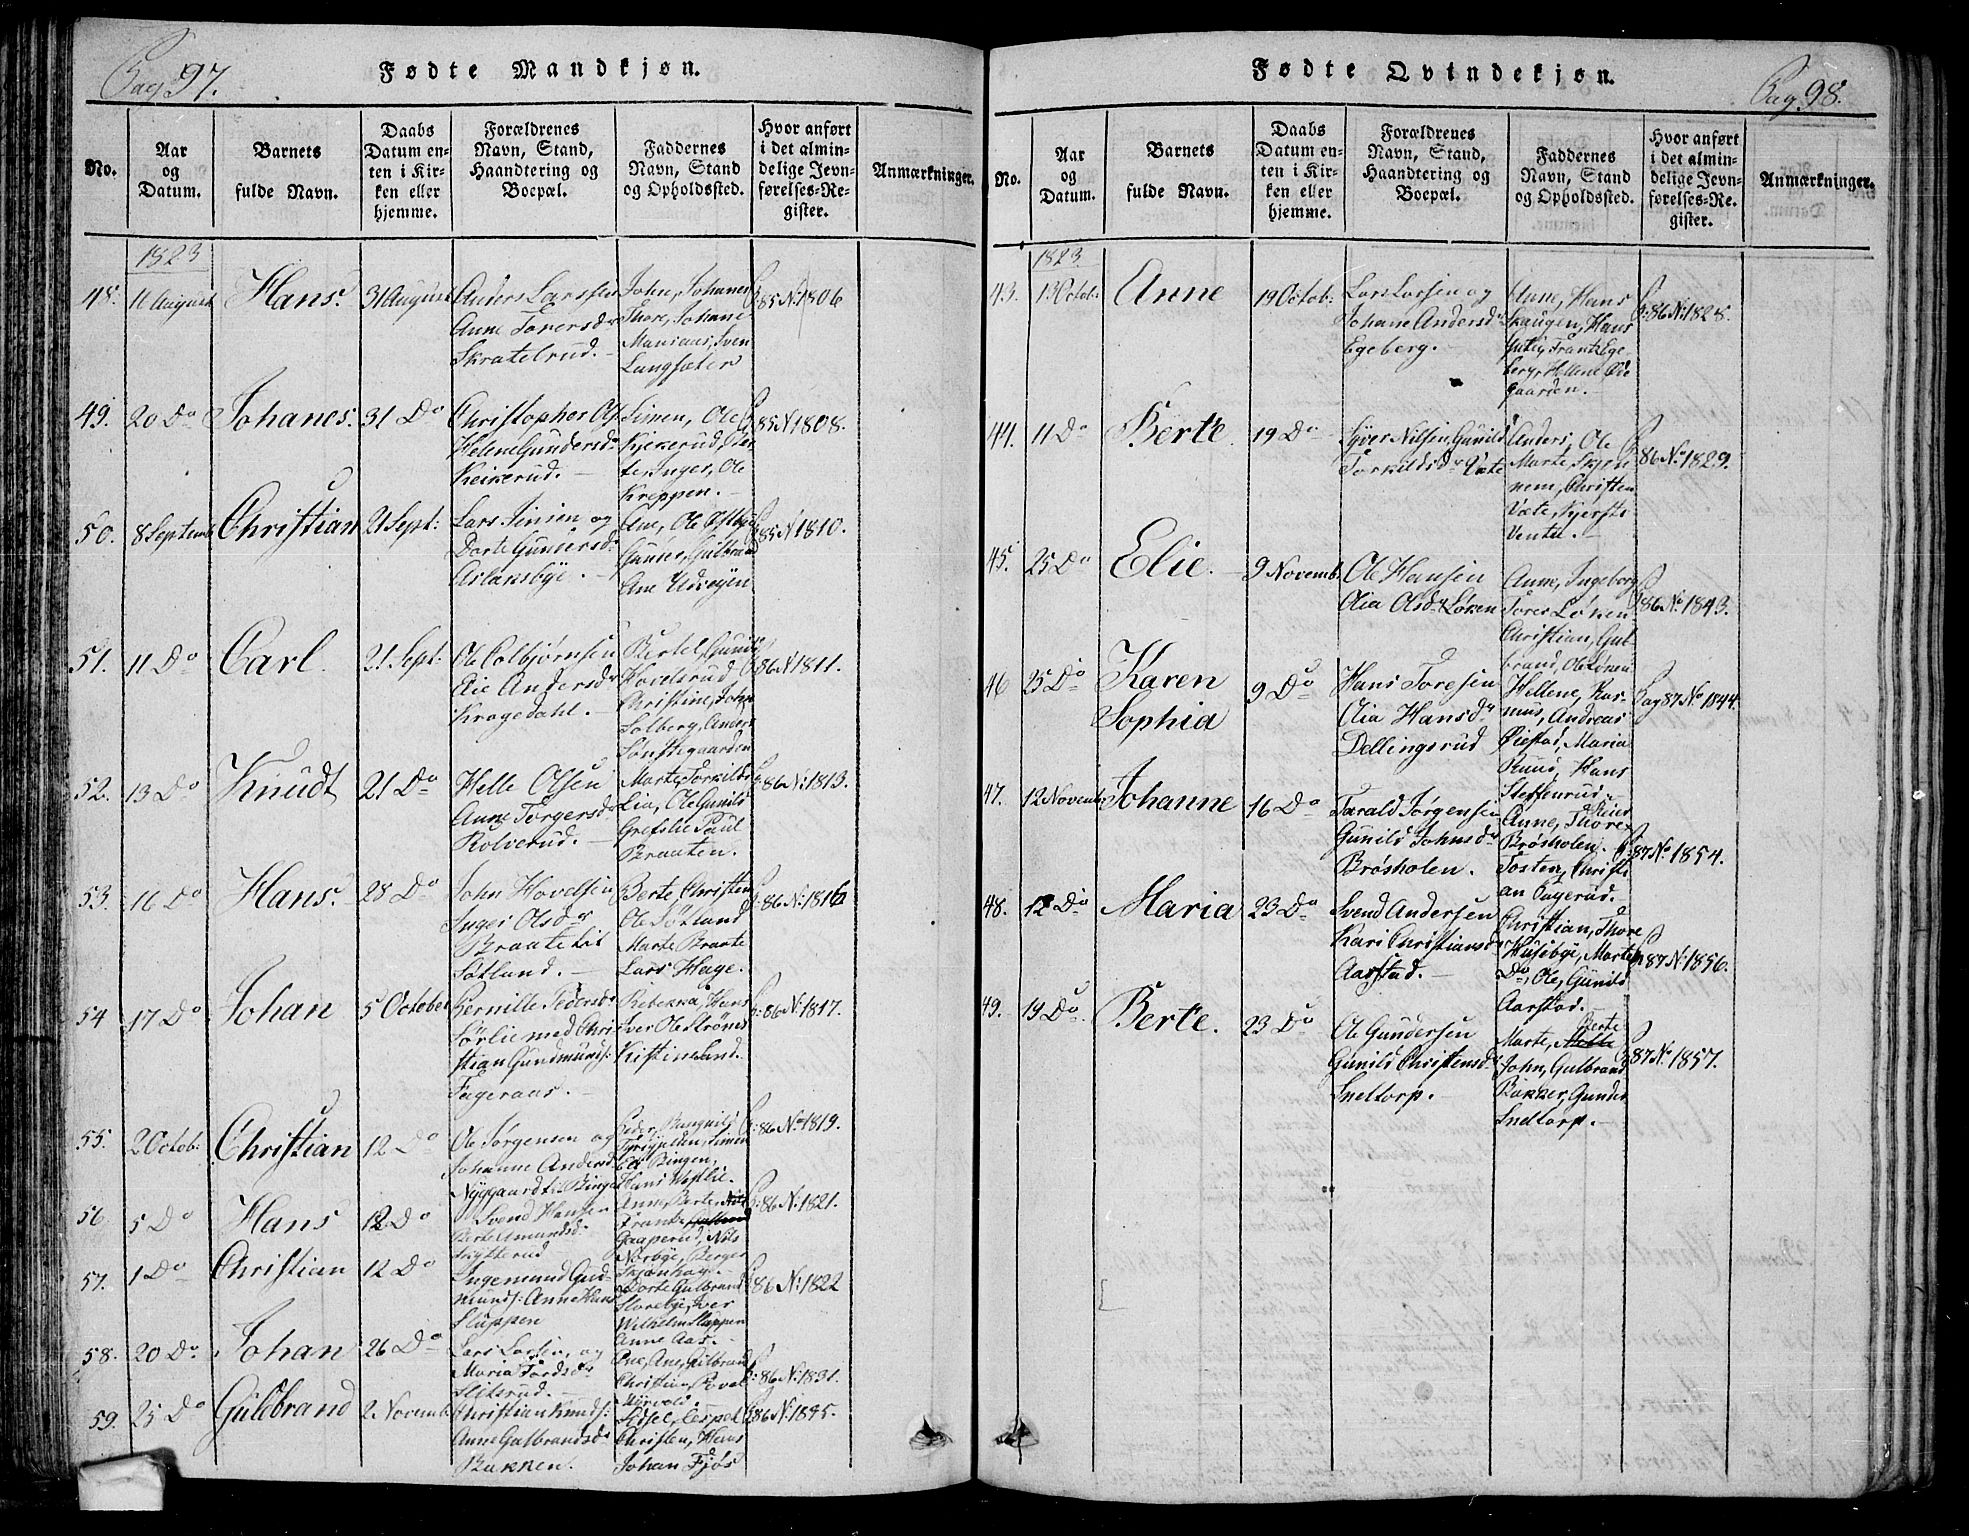 Pag 97.
Fødte Mandkjøn.
No.
Aar
og
Datum.
Barnets
fulde Navn.
Daabs
Datum en-
ten i Kir-
ken eller
hjemme.
Forældrenes
Navn, Stand,
Haandtering og
Boepæl.
Faddernes
Navn, Stand
og Opholdssted.
Hvor anført
i det almin-
delige Jevn-
førelses-Re-
gister.
Anmærkninger.
1823
48. 11 August Hans. 31 August
Anders Larssen
Anne Toresdr
Skratelrud.
John, Johanes
Thore, Johane
Mariaas, Sven
Langsæter
P: 85 N: 1806
49. 20 Do Johanes. 31 Do
Christopher Ols
Helene Gundersdr
Keikerud.
Simen, Ole
Kjekerud, Pet-
ter Inger, Ole
Kreppen.
P: 85 N: 1808.
50. 8 Septemb Christian 21 Sept:
Lars Jensen og
Dorte Gundersdr
Aslaksbye.
Ane, Ole Østbye
Gunne, Gulbrand
Ane Udsøyen
P: 85 N: 1810.
51. 11 Do Carl 21 Sept:
Ole Colbjørnsen
Elie Andersdr
Kragedahl.
Bertel, Gunild
Hovelsrud,
Christine, John
Solberg, Anders
Sønstegaarden
P: 86 N: 1811.
52. 13 Do Knudt 21 Do
Helle Olsen
Anne Torgersdr
Rolverud.
Marte Torkilds
Lia, Ole Gunild
Grefslie Paul
Braaten.
P: 86 N: 1813.
53. 16 Do Hans. 28 Do
John Hovelsen
Inger Olsdr
Braate til
Søtland.
Berte, Christen
Ole Søtland
Marte Braate
Lars Hage.
P: 86 N: 1816
54 17 Do Johan 5 October
Pernille Pedersdr
Sørlie med Chri-
stian Gundmunds:
Fageraas.
Rebekka, Hans
Iver Ole Strøms
Kistine Lund.
P: 86 N: 1817.
55. 2 Octob: Christian 12 Do
Ole Jørgensen og
Johanne Andersd
Nyggaard til Bingen
Peder, Rangnild
Simen
Eli Bingen,
Hans Westlie.
P: 86 No 1819.
56. 5 Do Hans 12 Do
Svend Hansen
Berte Amundsdr
Frytterud
Anne, Berte
Frants
Gaaperud, Nils
Norbye, Berger
Skjønhag.
P: 86 N: 1821.
57. 1 Do Christian 12 Do
Ingemund Gud-
munds: Anne Hans
Sluppen
Dorte Gulbrand
Storebye, Iver
Wilhelm Sluppen
Anne Aas.
P: 86 N: 1822
58. 20 Do Johan 26 Do
Lars Larsen, og
Maria Tordsdr
Slitsrud.
Ane, Ane, Gulbrand
Christian Poval
Myrvold.
P: 86 N: 1831.
59. 25 Do Guldbrand 2 Novemb:
Christian Knuds:
Anne Gulbrandsdr
Bakken.
Sidsel, Cespel
Christen, Hans
Johan Fjøs
P: 86 N: 1845.
Pag. 98.
Fødte Qvindekjøn.
No.
Aar
og
Datum.
Barnets
fulde Navn.
Daabs
Datum en-
ten i Kir-
ken eller
hjemme.
Forældrenes
Navn, Stand,
Haandtering og
Boepæl.
Faddernes
Navn, Stand,
og Opholdssted.
Hvor anført
i det almin-
delige Jevn-
førelses-Re-
gister.
Anmærkninger.
1823
43. 13 Octob: Anne 19 Octob:
Lars Larsen og
Johane Andersdr
Egeberg.
Anne, Hans
Skaugen, Hans
Frants Ege-
berg, Hellene Øde-
gaarden.
P: 86 N: 1828.
44. 11 Do Berte 19 Do
Syver Nilsen, Gunild
Torkildsdr Væte
Anders, Ole
Marte, Skjen-
nem, Christen
Væte, Kjersti
Venter.
P: 86 No 1829.
45. 25 Do Elie. 9 Novemb:
Ole Hansen
Olia Olsdr Løken
Anne, Ingeborg
Tores Løken
Christian, Gul-
brand, Ole Løken
P: 86 No 1843.
46 25 Do Karen
Sophia
9 Do
Hans Toresen
Olia Hansdr
Dellingsrud
Hellene, Ras-
mus, Andreas
Øiestad, Maria
Ruud, Hans
Steffenrud
Pag 87 No 1844.
47. 12 Novemb: Johanne 16 Do
Tarald Jørgensen
Gunild Johnsdr
Brøsholen.
Anne, Thore
Brøsholen.
Tosten, Christi-
an Pagerud.
P: 87 No 1854.
48. 12 Do Maria 23 Do
Svend Andersen
Kari Christiansdr
Aarstad.
Christian, Thore
Husebye, Marte
Do, Ole, Gunild
Aarstad.
P: 87 N: 1856.
49. 19 Do Berte. 23 Do
Ole Gundersen
Gunild Christensdr
Sneltorp.
Berte
Marte,
John, Gulbrand
Bakker, Gunder
Sneltorp.
P: 87 No 1857.